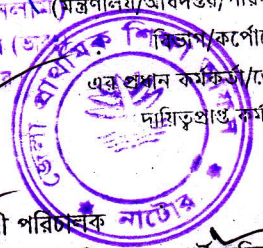 (মন্ত্রণালয়/অধিদপ্তর/
বিভাগ/কর্পো
এর প্রধান কর্মকর্তা/
দায়িত্বপ্রাপ্ত কর্ম
জেলা প্রাথমিক শিক্ষা
নাটোর
পরিচালক